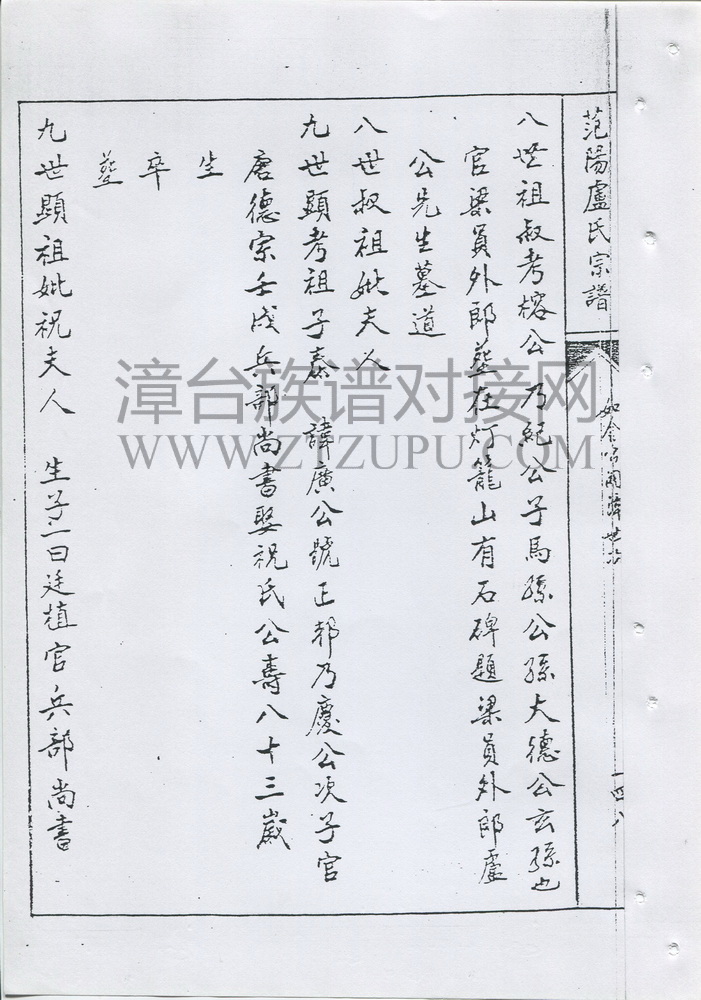 范陽盧氏宗譜
一四八
八世祖叔考榕公 乃紀公子馬孫公孫大德公玄孫也
官梁員外郎塟在灯籠山有石碑題梁員外郎盧
公先生墓道
八世叔祖妣夫人
九世顯考祖子泰 諱廣公號正邦乃慶公次子官
唐德宗壬戍兵部尚書娶祝氏公壽八十三歲
生
卒
塟
九世顯祖妣祝夫人 生子二曰廷植官兵部尚書
漳台族谱对接网
WWW.ZTZUPU.COM